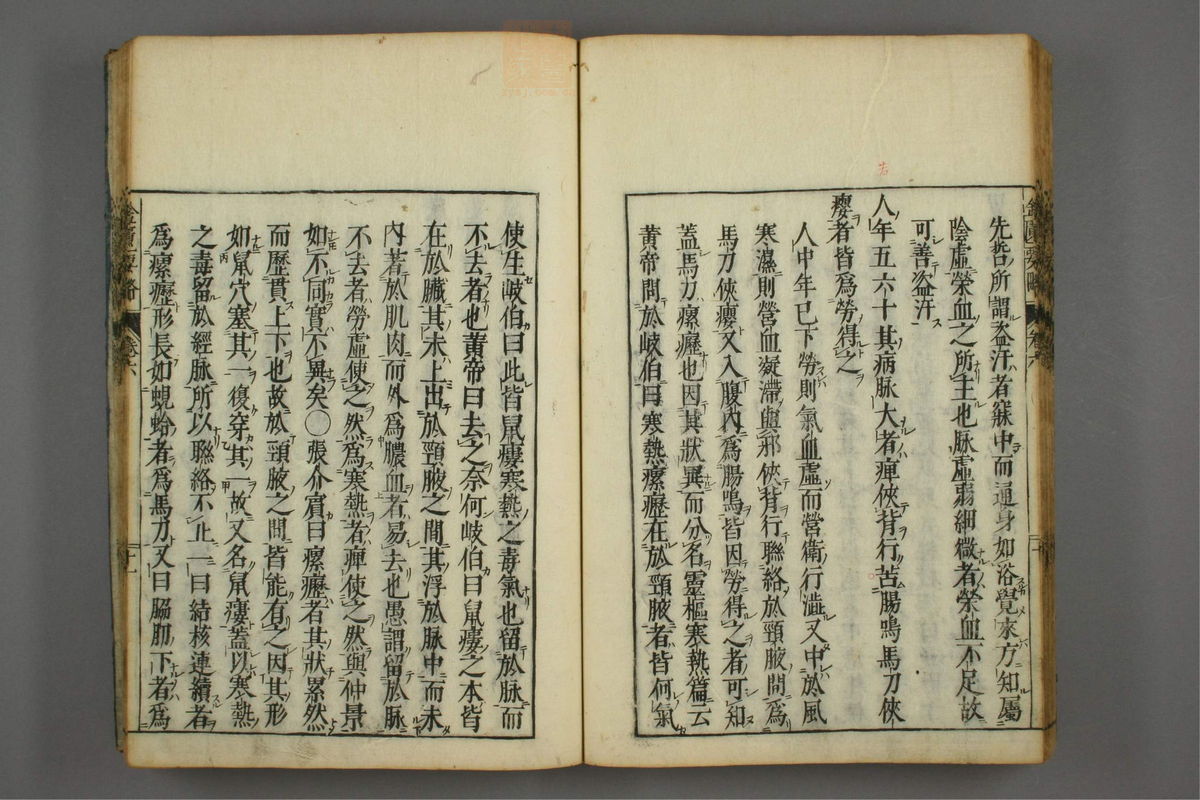 先哲所謂盗汗者寐中而通身如浴覺來方知屬
陰虛榮血之所主也脉虛弱細微者榮血不足故
可善盗汗
人年五六十其病脉大者痺俠背行苦腸鳴馬刀俠
癭者皆爲勞得之
人中年已下勞則氣血虛而營衛行澁又中於風
寒濕則營血凝滯與邪俠背行聯絡於頸腋間爲
馬刀俠癭又入腹內爲腸鳴皆因勞得之者可知
蓋馬刀瘰癧也因其狀異而分名靈樞寒熱篇云
黃帝問於岐伯曰寒熱瘰癧在於頸腋者皆何氣
使生岐伯曰此皆鼠瘻寒熱之毒氣也留於脉而
不去者也黃帝曰去之奈何岐伯曰鼠瘻之本皆
在於臟其末上出於頸腋之間其浮於脉中而未
內著於肌肉而外爲膿血者易去也愚謂留於脉
不去者勞虛使之然爲寒熱者痺使之然與仲景
如不同實不異矣○張介賓曰瘰癧者其狀累然
而歷貫上下也故於頸腋之間皆能有之因其形
如鼠穴塞其一復穿其一故又名鼠瘻蓋以寒熱
之毒留於經脉所以聯絡不止一曰結核連續者
爲瘰癧形長如蜆蛤者爲馬刀又曰脇肋下者爲
金匱要略
卷六
十一